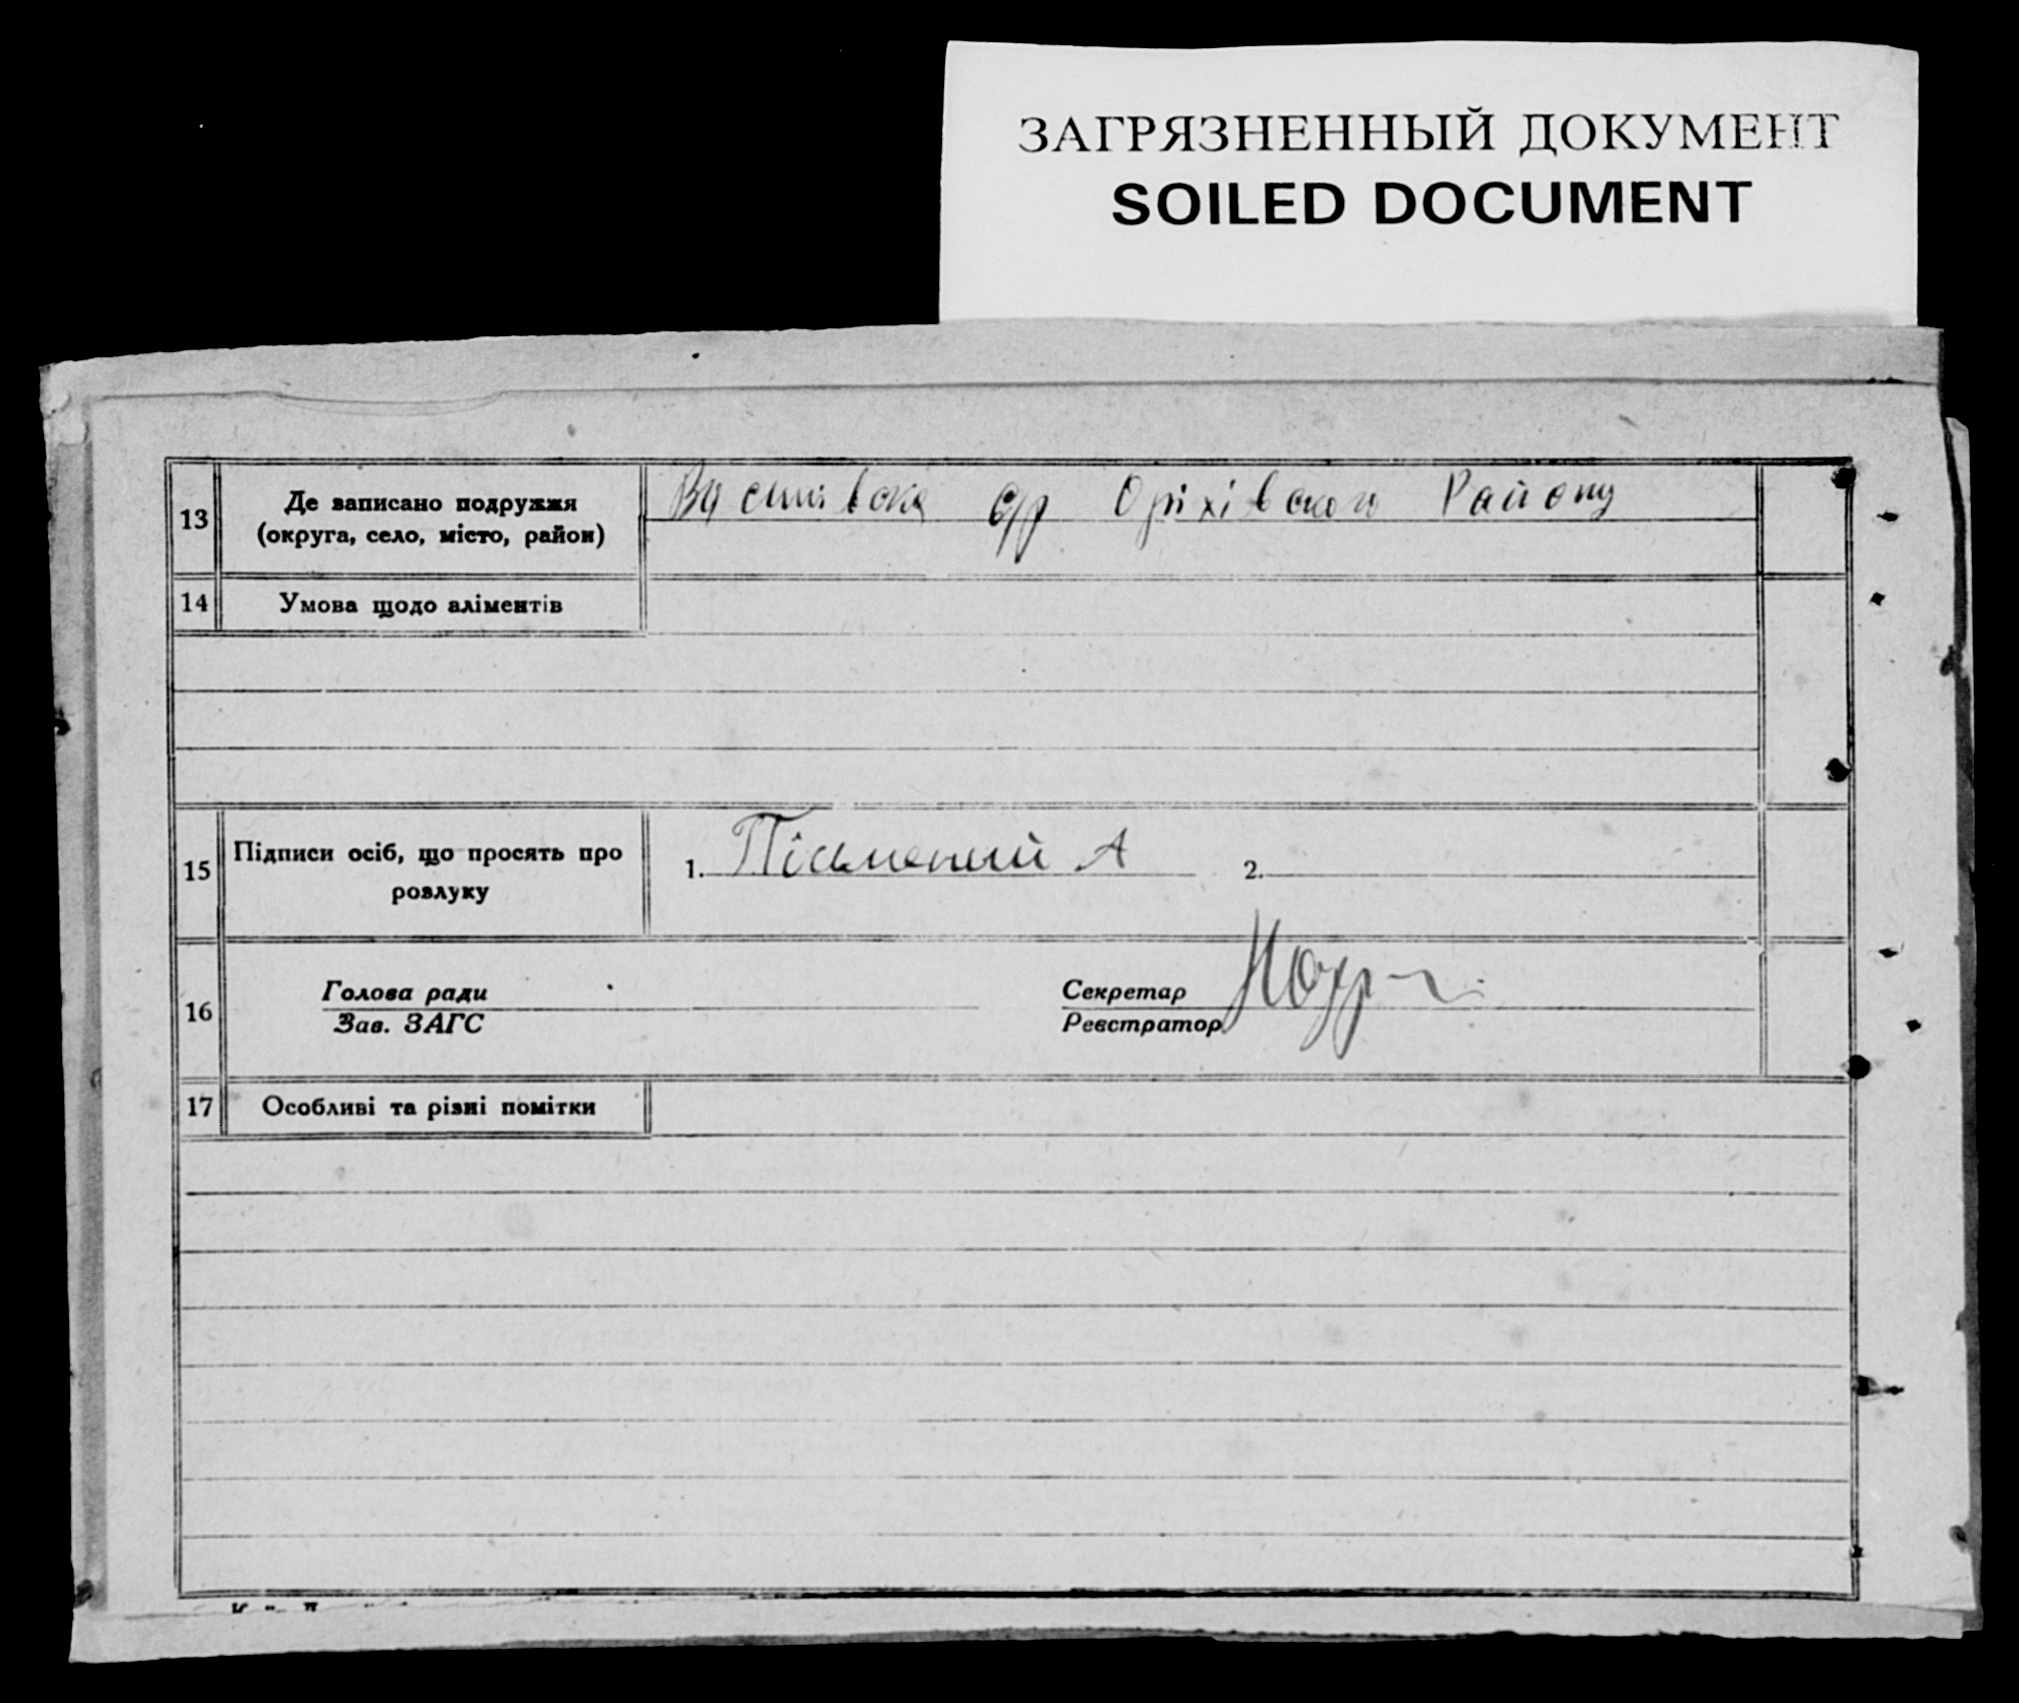 ЗАГРЯЗНЕННЫЙ ДОКУМЕНТ
SOILED DOCUMENT
13
Де записано подружжя
(округа, село, місто, район)
с/р Оріхівского Району
14
Умова щодо аліментів
15
Підписи осіб, що просять про
розлуку
1. Пісьмений А
2.
16
Голова ради
Зав. ЗАГС
Секретар
Реєстратор
17
Особливі та різні помітки